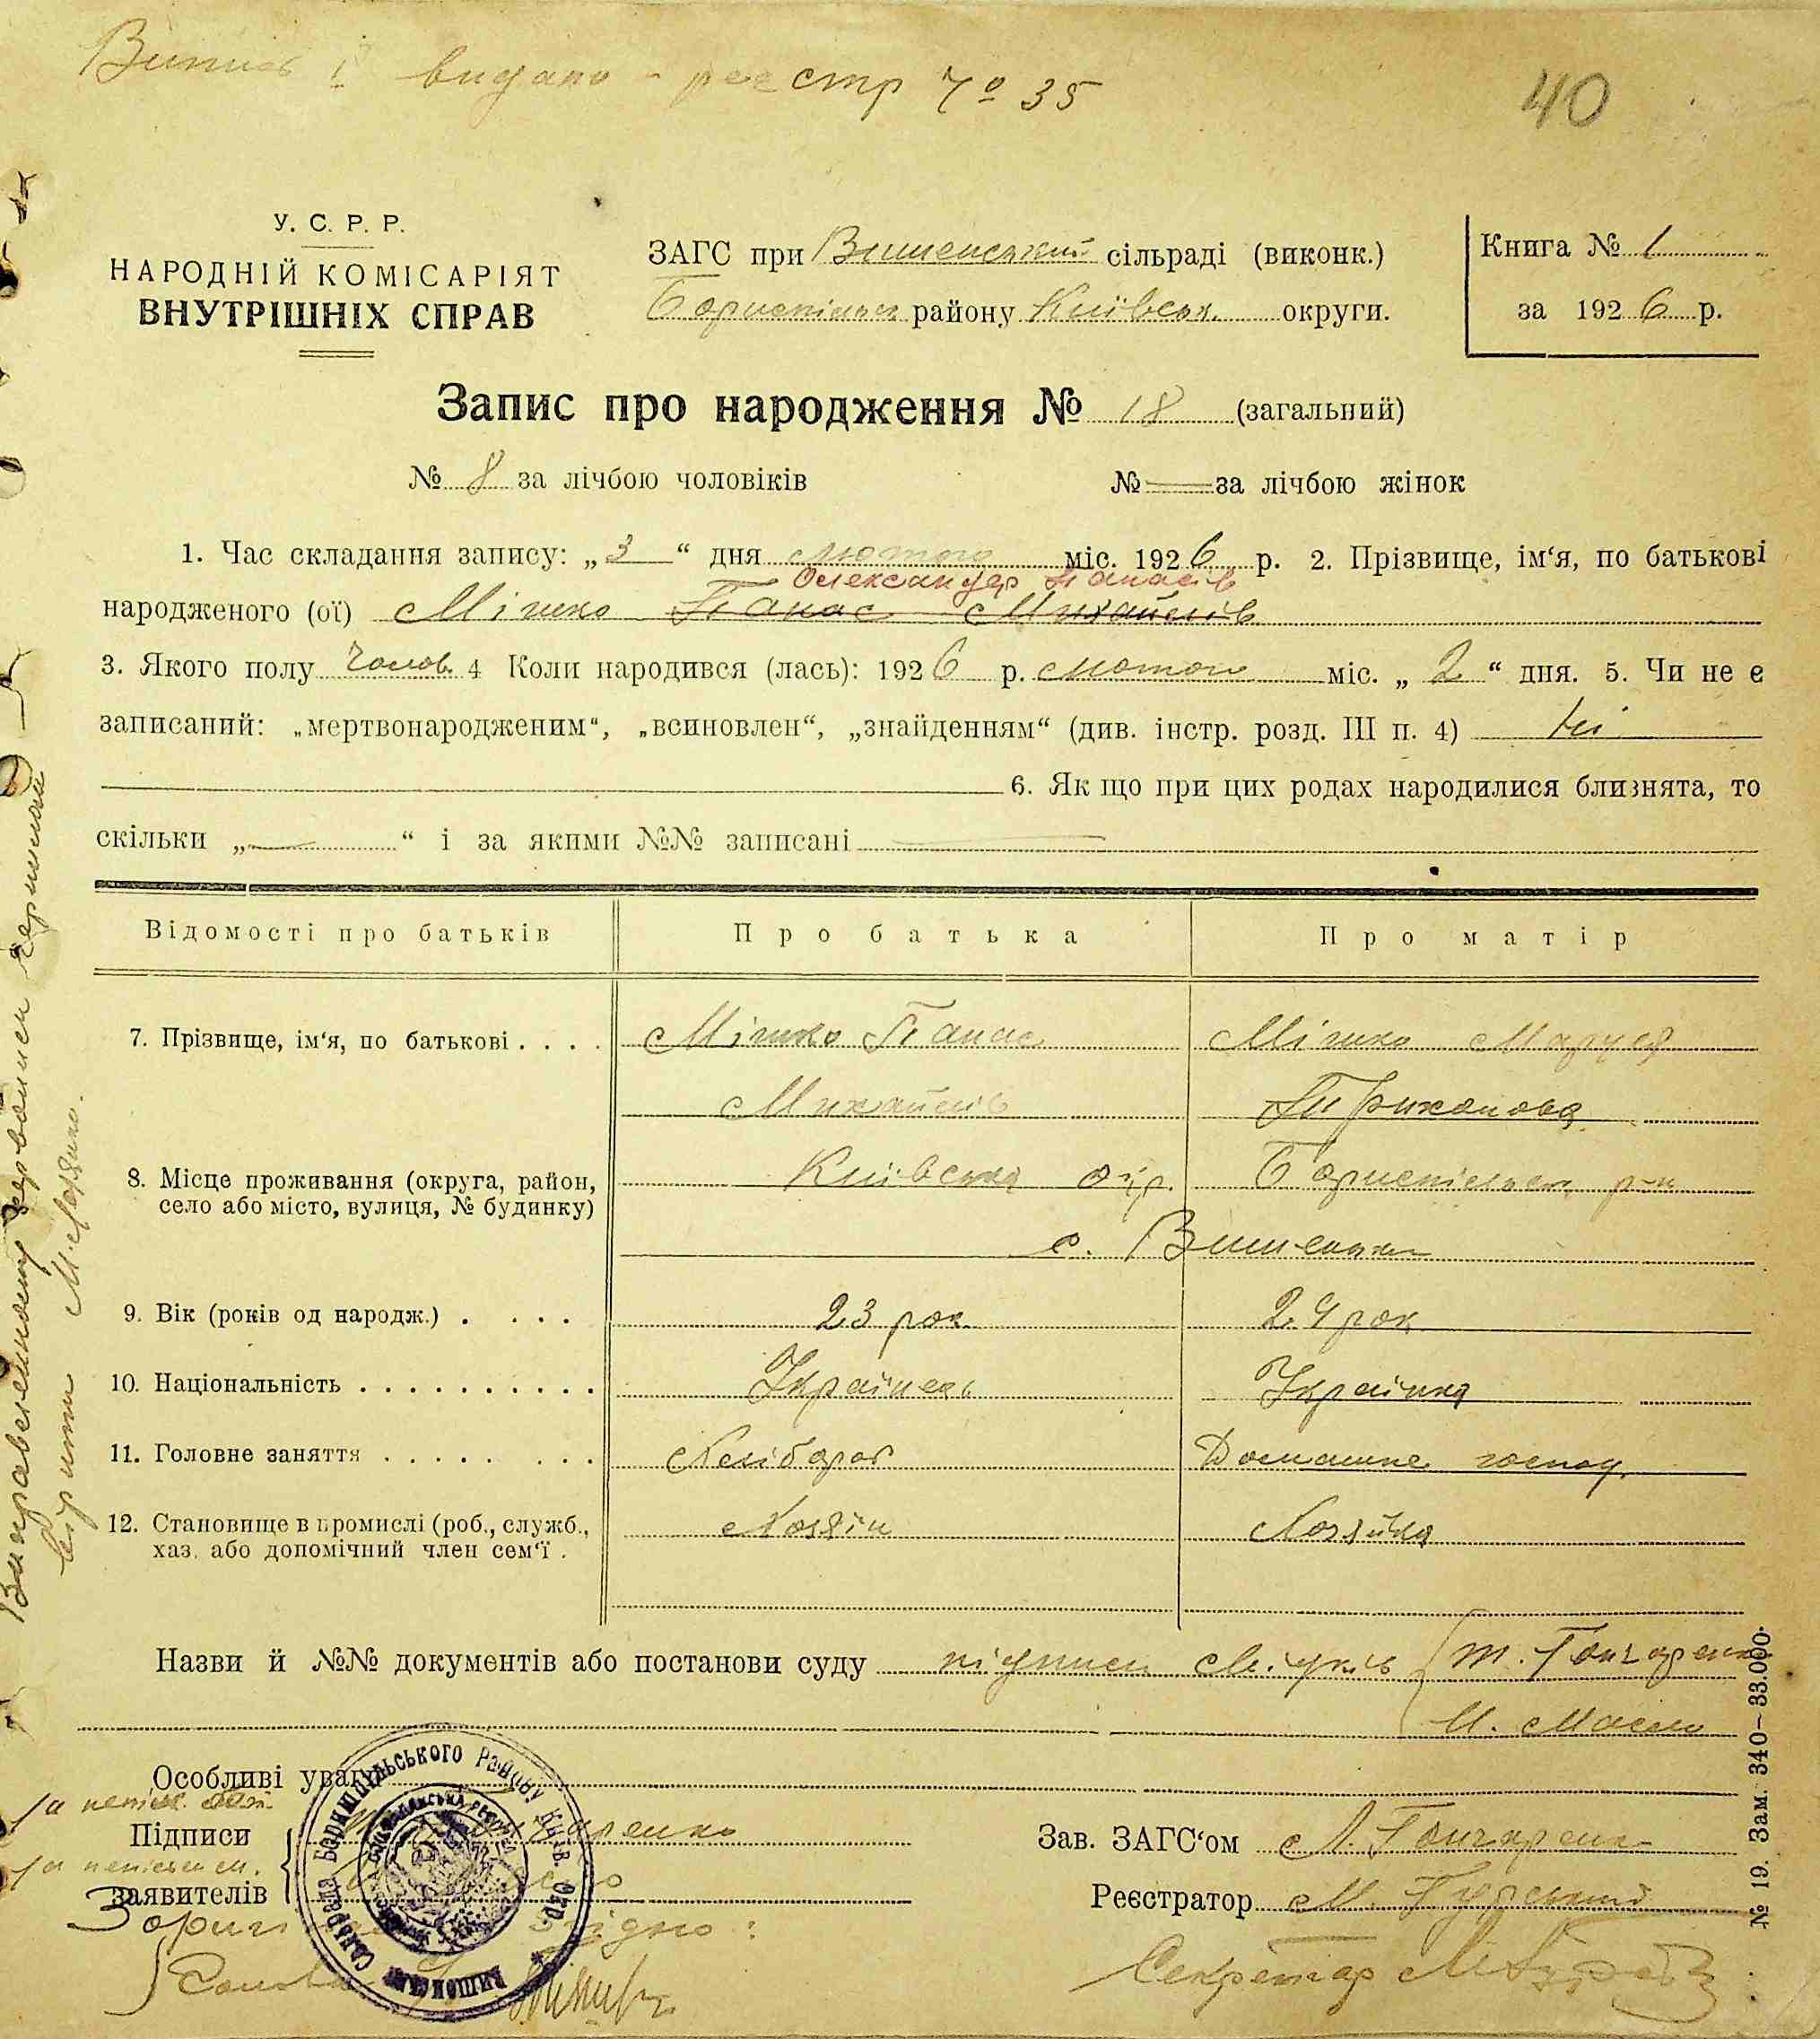 Випись і видано - реєстр № 35
40
У. С. Р. Р.
НАРОДНІЙ КОМІСАРІЯТ
ВНУТРІШНІХ СПРАВ
ЗАГС при Вишенській сільраді (виконк.)
району Київськ. округи.
Книга № 1
за 1926 р.
Запис про народження № 18 (загальний)
№ 8 за лічбою чоловіків
№ — за лічбою жінок
1. Час складання запису: „3“ дня лютого міс. 1926 р. 2. Прізвище, ім‘я, по батькові
Олександер Панасів
народженого (ої) Мішко Панас Михайлів
3. Якого полу чолов. 4 Коли народився (лась): 1926 р. лютого міс. „2“ дня. 5. Чи не є
записаний: „мертвонародженим“, „всиновлен“, „знайденням“ (див. інстр. розд. III п. 4) ні
6. Як що при цих родах народилися близнята, то
скільки „—“ і за якими №№ записані —
Відомості про батьків Про батька Про матір
7. Прізвище, ім‘я, по батькові . . . . Мішко Панас Мішко Маруся
Михайлів
8. Місце проживання (округа, район, Київська окр. р-н
село або місто, вулиця, № будинку) с. Вишеньки
9. Вік (років од народж.) . . . . 23 рок. 24 рок.
10. Національність . . . . . . . . . . . Українець Українка
11. Головне заняття . . . . . . . . Хлібороб Домашне господ.
12. Становище в промислі (роб., служб., Хозяїн Хозяйка
хаз. або допомічний член сем‘ї .
Назви й №№ документів або постанови суду підписи свідків Т. Гончаренко
И. Масло
Особливі уваги
Підписи
заявителів
Зав. ЗАГС‘ом Л. Гончаренко
Реєстратор М.
З оригіналом згідно:
Голова
Секретар
Виправленному червоними чорнилами
вірити
№ 19. Зам. 340—33.000.
Сільрада Баришпільського Району Київ. Окр.